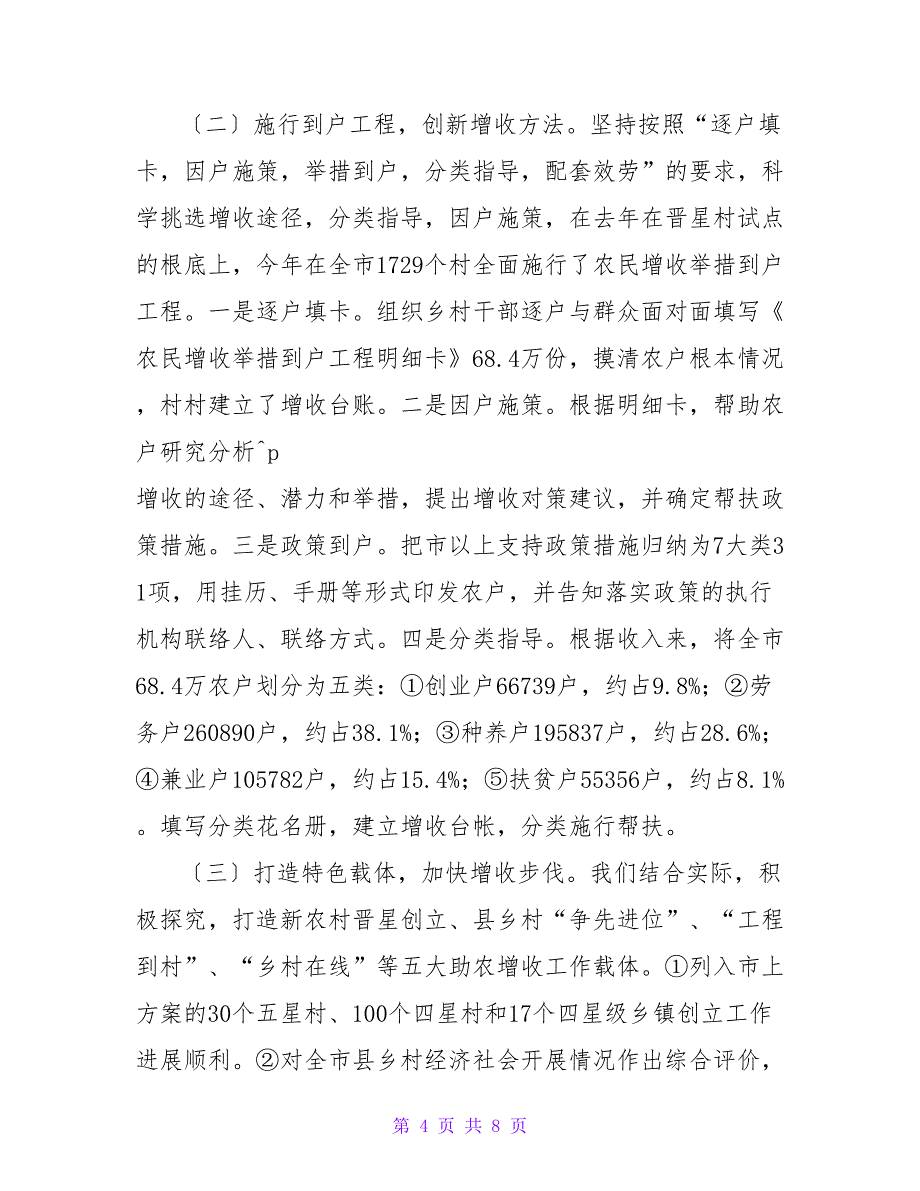 〔二〕施行到户工程，创新增收方法。坚持按照“逐户填
卡，因户施策，举措到户，分类指导，配套效劳”的要求，科
学挑选增收途径，分类指导，因户施策，在去年在晋星村试点
的根底上，今年在全市1729个村全面施行了农民增收举措到户
工程。一是逐户填卡。组织乡村干部逐户与群众面对面填写《
农民增收举措到户工程明细卡》68.4万份，摸清农户根本情况
，村村建立了增收台账。二是因户施策。根据明细卡，帮助农
户研究分析^p
增收的途径、潜力和举措，提出增收对策建议，并确定帮扶政
策措施。三是政策到户。把市以上支持政策措施归纳为7大类3
1项，用挂历、手册等形式印发农户，并告知落实政策的执行
机构联络人、联络方式。四是分类指导。根据收入来，将全市
68.4万农户划分为五类：①创业户66739户，约占9.8%；②劳
务户260890户，约占38.1%；③种养户195837户，约占28.6%；
④兼业户105782户，约占15.4%；⑤扶贫户55356户，约占8.1%
。填写分类花名册，建立增收台帐，分类施行帮扶。
〔三〕打造特色载体，加快增收步伐。我们结合实际，积
极探究，打造新农村晋星创立、县乡村“争先进位”、“工程
到村”、“乡村在线”等五大助农增收工作载体。①列入市上
方案的30个五星村、100个四星村和17个四星级乡镇创立工作
进展顺利。②对全市县乡村经济社会开展情况作出综合评价，
第 4 页 共 8 页